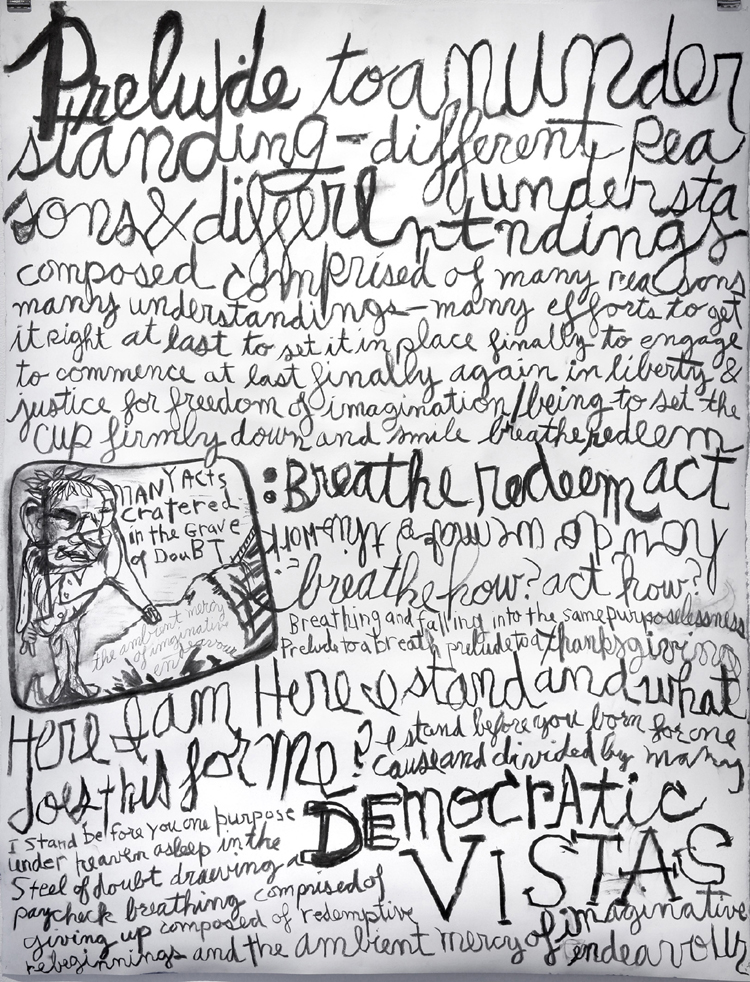 Prelude to an under
standing-different rea
sons & different understa
ndings
composed comprised of many reasons
many understandings-many efforts to get
it right at last to set it in place finally to engage
to commence at last finally again in liberty &
justice for freedom of imagination/being to set the
cup firmly down and smile breathe redeem
: Breathe redeem act
How do we most a this work
breathe how? act how?
Breathing and falling into the same purposelessness
Prelude to a breath prelude to a thanksgiving
MANY Acts
cratered
in the Grave
of DouBT
the ambient mercy
of imaginative
endeavour
Here I am Here I stand and what
does this for me?
I stand before you born for one
cause and divided by many
DEmocrAtic
VISTAS
I stand before you one purpose
under heaven asleep in the
Steel of doubt drawing a
paycheck breathing comprised of
giving up composed of redemptive
rebeginnings and the ambient mercy of imaginative
endeavour